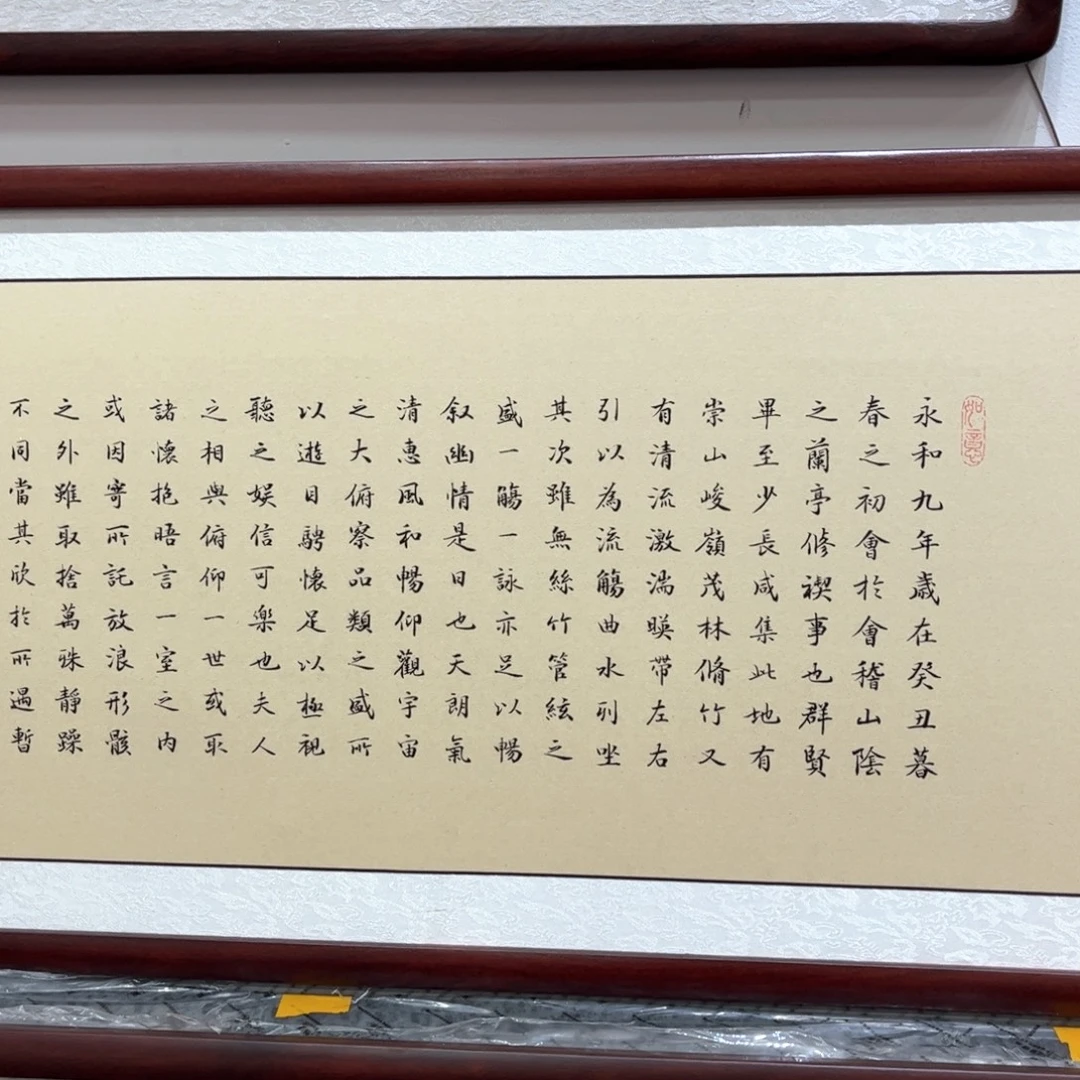 如意
永和九年歲在癸丑暮
春之初會於會稽山陰
之蘭亭修禊事也群賢
畢至少長咸集此地有
崇山峻嶺茂林脩竹又
有清流激湍暎帶左右
引以為流觴曲水列坐
其次雖無絲竹管絃之
盛一觴一詠亦足以暢
叙幽情是日也天朗氣
清惠風和暢仰觀宇宙
之大俯察品類之盛所
以遊目騁懷足以極視
聽之娛信可樂也夫人
之相與俯仰一世或取
諸懷抱晤言一室之內
或因寄所託放浪形骸
之外雖取捨萬殊静躁
不同當其欣於所遇暫